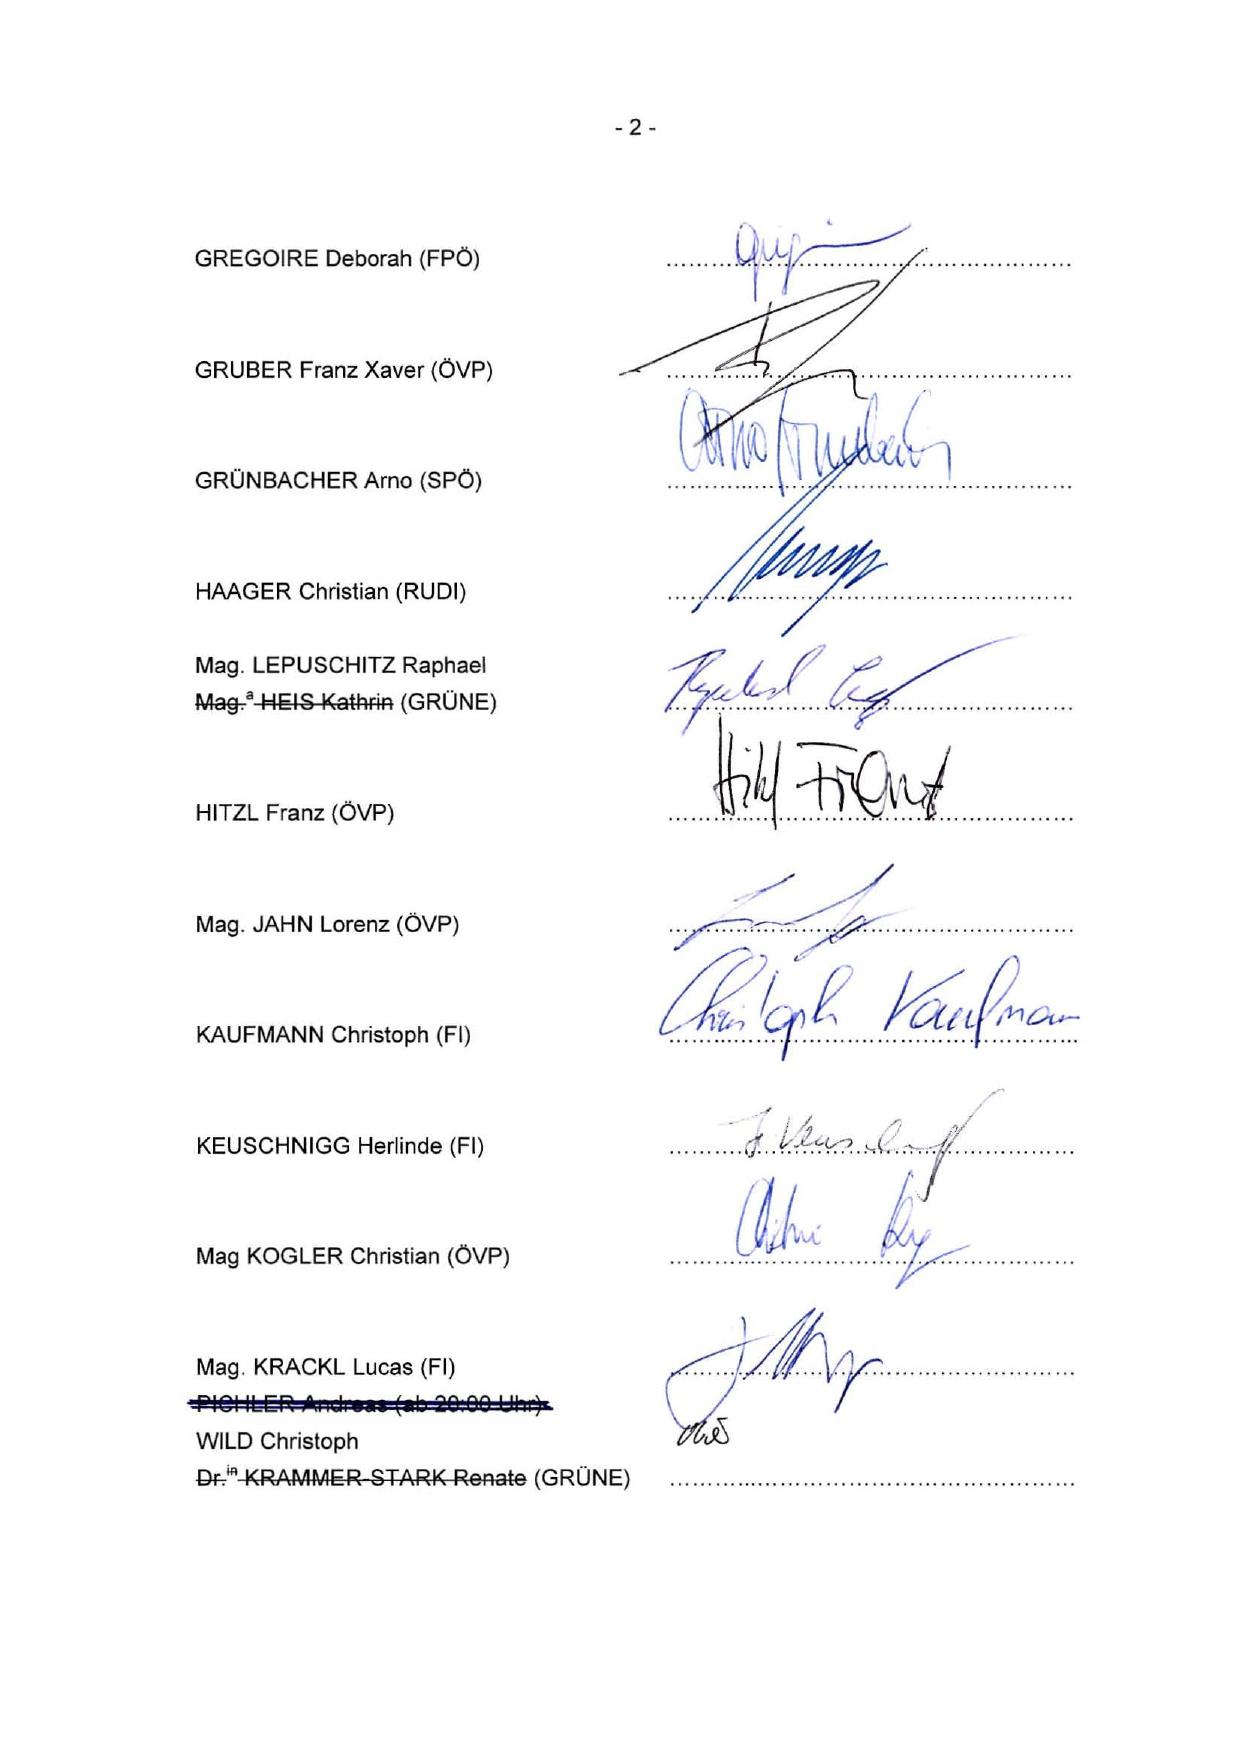 - 2 -
GREGOIRE Deborah (FPÖ)
GRUBER Franz Xaver (ÖVP)
GRÜNBACHER Arno (SPÖ)
Arno Grünbacher
HAAGER Christian (RUDI)
Mag. LEPUSCHITZ Raphael
Mag.ª HEIS Kathrin (GRÜNE)
HITZL Franz (ÖVP)
Hitzl Franz
Mag. JAHN Lorenz (ÖVP)
KAUFMANN Christoph (FI)
Christoph Kaufmann
KEUSCHNIGG Herlinde (FI)
Mag KOGLER Christian (ÖVP)
Mag. KRACKL Lucas (FI)
PICHLER Andreas (ab 20:00 Uhr)
WILD Christoph
Dr.in KRAMMER-STARK Renate (GRÜNE)